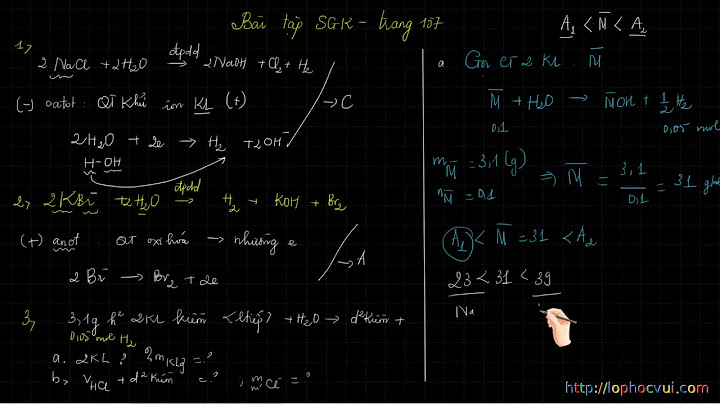 Bài tập SGK - trang 157
1,
2NaCl + 2H₂O →(đpdd) 2NaOH + Cl₂ + H₂
(-) catot: QT khử ion KL (+)
→ C
2H₂O + 2e → H₂ + 2OH⁻
H-OH
2, 2KBr + 2H₂O →(đpdd) H₂ + KOH + Br₂
(+) anot: QT oxi hoá → nhường e
→ A
2Br⁻ → Br₂ + 2e
3, 3,1g h² 2KL kiềm <ltiếp> + H₂O → d² kiềm +
0,05 mol H₂
a. 2KL? % mKLg = ?
b, V HCl + d² kiềm = ? ; m = ?
A₁ < M̅ < A₂
a Gọi CT 2 KL: M̅
M̅ + H₂O → M̅OH + 1/2 H₂
0,1 0,05 mol
m M̅ = 3,1 (g)
n M̅ = 0,1
⇒ M̅ = 3,1/0,1 = 31
A₁ < M̅ = 31 < A₂
23 < 31 < 39
Na
http://lophocvui.com